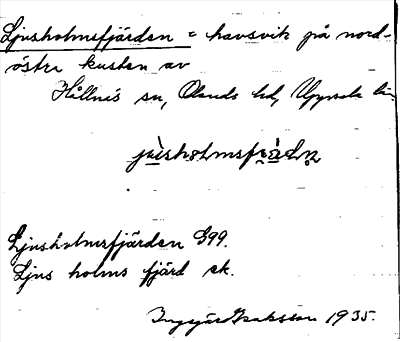 Ljusholmsfjärden = havsvik på nord-
östra kusten av
Hållnäs sn, Olands hd, Uppsala län.
Ljusholmsfjärden G99.
Ljus holms fjärd ek.
Ingegär Isaksson 1935.